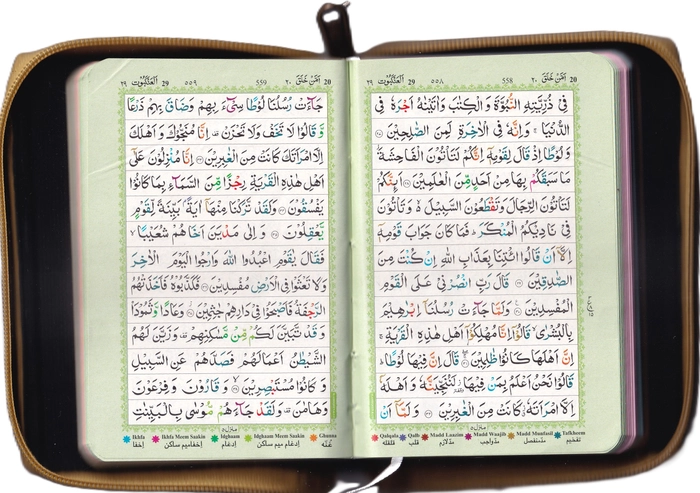 20 اَمَّنْ خَلَقَ ٢٠ 558 ٥٥٨ 29 اَلْعَنْكَبُوْت ٢٩
فِىْ ذُرِّيَّتِهِ النُّبُوَّةَ وَ الْكِتٰبَ وَ اٰتَيْنٰهُ اَجْرَهٗ فِى
الدُّنْيَا ۚ وَ اِنَّهٗ فِى الْاٰخِرَةِ لَمِنَ الصّٰلِحِيْنَ ﴿٢٧﴾
وَ لُوْطًا اِذْ قَالَ لِقَوْمِهٖۤ اِنَّكُمْ لَتَاْتُوْنَ الْفَاحِشَةَ ؗ
مَا سَبَقَكُمْ بِهَا مِنْ اَحَدٍ مِّنَ الْعٰلَمِيْنَ ﴿٢٨﴾ اَىِٕنَّكُمْ
لَتَاْتُوْنَ الرِّجَالَ وَ تَقْطَعُوْنَ السَّبِيْلَ ۙ۬ وَ تَاْتُوْنَ
فِىْ نَادِيْكُمُ الْمُنْكَرَ ؕ فَمَا كَانَ جَوَابَ قَوْمِهٖۤ
اِلَّاۤ اَنْ قَالُوا ائْتِنَا بِعَذَابِ اللّٰهِ اِنْ كُنْتَ مِنَ
الصّٰدِقِيْنَ ﴿٢٩﴾ قَالَ رَبِّ انْصُرْنِىْ عَلَى الْقَوْمِ
الْمُفْسِدِيْنَ ﴿٣٠﴾ وَ لَمَّا جَآءَتْ رُسُلُنَاۤ اِبْرٰهِيْمَ
بِالْبُشْرٰى ۙ قَالُوْۤا اِنَّا مُهْلِكُوْۤا اَهْلِ هٰذِهِ الْقَرْيَةِ ۚ
اِنَّ اَهْلَهَا كَانُوْا ظٰلِمِيْنَ ﴿٣١﴾ قَالَ اِنَّ فِيْهَا لُوْطًا ؕ
قَالُوْا نَحْنُ اَعْلَمُ بِمَنْ فِيْهَا ؗ لَنُنَجِّيَنَّهٗ وَ اَهْلَهٗۤ
اِلَّا امْرَاَتَهٗ ؗ كَانَتْ مِنَ الْغٰبِرِيْنَ ﴿٣٢﴾ وَ لَمَّاۤ اَنْ
منزل ٥
Qalqala Qalb Madd Laazim Madd Waajib Madd Munfasil Tafkheem
قلقله قلب مدّلازم مدّواجب مدّمنفصل تفخيم
20 اَمَّنْ خَلَقَ ٢٠ 559 ٥٥٩ 29 اَلْعَنْكَبُوْت ٢٩
جَآءَتْ رُسُلُنَا لُوْطًا سِىْٓءَ بِهِمْ وَ ضَاقَ بِهِمْ ذَرْعًا
وَّ قَالُوْا لَا تَخَفْ وَ لَا تَحْزَنْ ۫ اِنَّا مُنَجُّوْكَ وَ اَهْلَكَ
اِلَّا امْرَاَتَكَ كَانَتْ مِنَ الْغٰبِرِيْنَ ﴿٣٣﴾ اِنَّا مُنْزِلُوْنَ عَلٰٓى
اَهْلِ هٰذِهِ الْقَرْيَةِ رِجْزًا مِّنَ السَّمَآءِ بِمَا كَانُوْا
يَفْسُقُوْنَ ﴿٣٤﴾ وَ لَقَدْ تَّرَكْنَا مِنْهَاۤ اٰيَةًۢ بَيِّنَةً لِّقَوْمٍ
يَّعْقِلُوْنَ ﴿٣٥﴾ وَ اِلٰى مَدْيَنَ اَخَاهُمْ شُعَيْبًا ۙ
فَقَالَ يٰقَوْمِ اعْبُدُوا اللّٰهَ وَ ارْجُوا الْيَوْمَ الْاٰخِرَ
وَ لَا تَعْثَوْا فِى الْاَرْضِ مُفْسِدِيْنَ ﴿٣٦﴾ فَكَذَّبُوْهُ فَاَخَذَتْهُمُ
الرَّجْفَةُ فَاَصْبَحُوْا فِىْ دَارِهِمْ جٰثِمِيْنَ ﴿٣٧﴾ وَ عَادًا وَّ ثَمُوْدَا۠
وَ قَدْ تَّبَيَّنَ لَكُمْ مِّنْ مَّسٰكِنِهِمْ ۫ وَ زَيَّنَ لَهُمُ
الشَّيْطٰنُ اَعْمَالَهُمْ فَصَدَّهُمْ عَنِ السَّبِيْلِ
وَ كَانُوْا مُسْتَبْصِرِيْنَ ﴿٣٨﴾ وَ قَارُوْنَ وَ فِرْعَوْنَ
وَ هَامٰنَ ۫ وَ لَقَدْ جَآءَهُمْ مُّوْسٰى بِالْبَيِّنٰتِ
منزل ٥
Ikhfa Ikhfa Meem Saakin Idghaam Idghaam Meem Saakin Ghunna
اخفا اخفاميم ساكن ادغام ادغام ميم ساكن غنّه